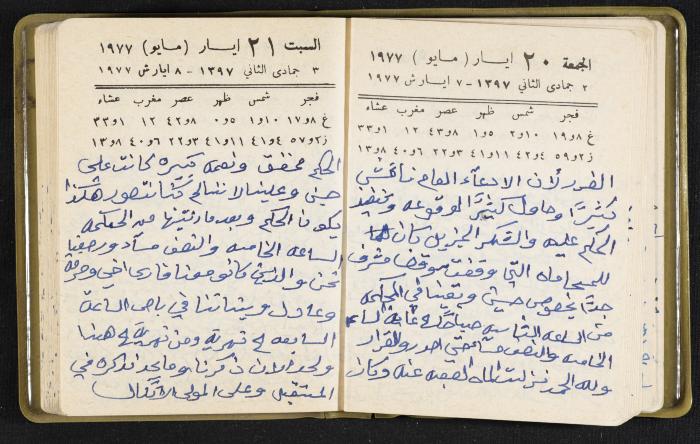 الجمعة ٢٠ ايـار ( مايو ) ١٩٧٧
٢ جمادى الثاني ١٣٩٧ - ٧ ايـارش ١٩٧٧
فجر شمس ظهر عصر مغرب عشاء
غ ١٩و٨ ٢و١٠ ١و٥ ٤٣و٨ ١٢ ٣٣و١
ز ٥٩و٢ ٤٢و٤ ٤١و١١ ٢٢و٣ ٤٠و٦ ١٣و٨
الضرر لأن الادعاء العام ناقش
كثيرًا وحاول كثيرًا لوقوعه وتخفيف
الحكم عليه والشكر الجزيل كان
للمحاماه التي وقفت موقف مشرف
جدًا بخصوص حيثي وبقينا في المحكمه
من الساعه الثانيه صباحًا لغاية الساعه
الخامسه والنصف حتى صدور القرار
ولله الحمد نزلت الصعبه عنه وكان
السبت ٢١ ايـار ( مايو ) ١٩٧٧
٣ جمادى الثاني ١٣٩٧ - ٨ ايارش ١٩٧٧
فجر شمس ظهر عصر مغرب عشاء
غ ١٧و٨ ١و١٠ ٠و٥ ٤٢و٨ ١٢ ٣٣و١
ز ٥٧و٢ ٤١و٤ ٤١و١١ ٢٢و٣ ٤٠و٦ ١٣و٨
الحكم مخفف ونعمه كبيره كانت على
حيثي وعلينا لاننا لم كنا نتصور هكذا
يكون الحكم وبعد من المحكمه
الساعه الخامسه والنصف مساء ورجعنا
نحن والذين كانو معنا فارس اخي و
وعادل وبيتنا في باص الساعة
السابعه لنهريا ومن نهريا لهنا
ولحد الان ذكرنا وما يجد نذكره في
المستقبل وعلى المولى الاتكال